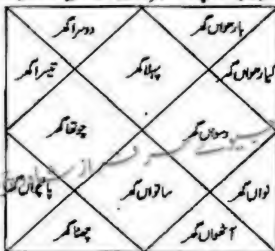 دوسرا گھر
بارھواں گھر
پہلا گھر
تیسرا گھر
گیارھواں گھر
چوتھا گھر
دسواں گھر
پانچواں گھر
ساتواں گھر
نواں گھر
چھٹا گھر
آٹھواں گھر